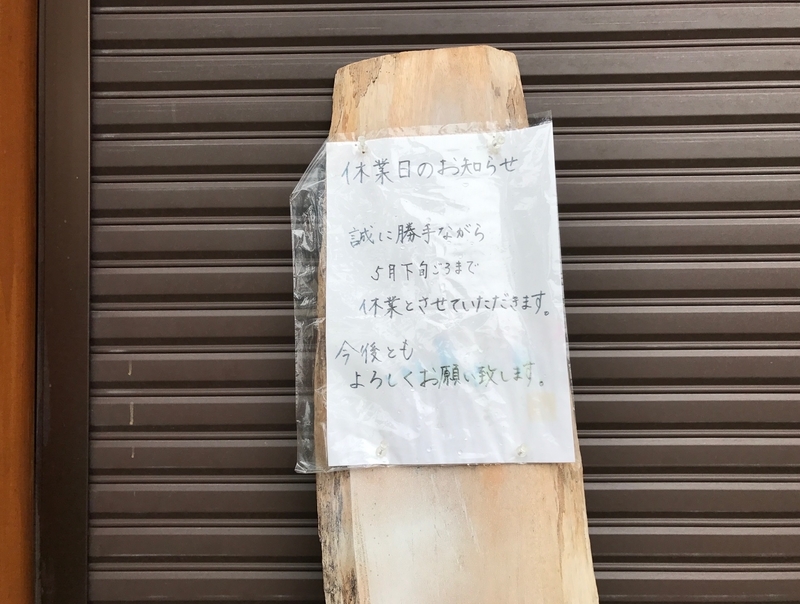 休業日のお知らせ
誠に勝手ながら
5月下旬ごろまで
休業とさせていただきます。
今後とも
よろしくお願い致します。